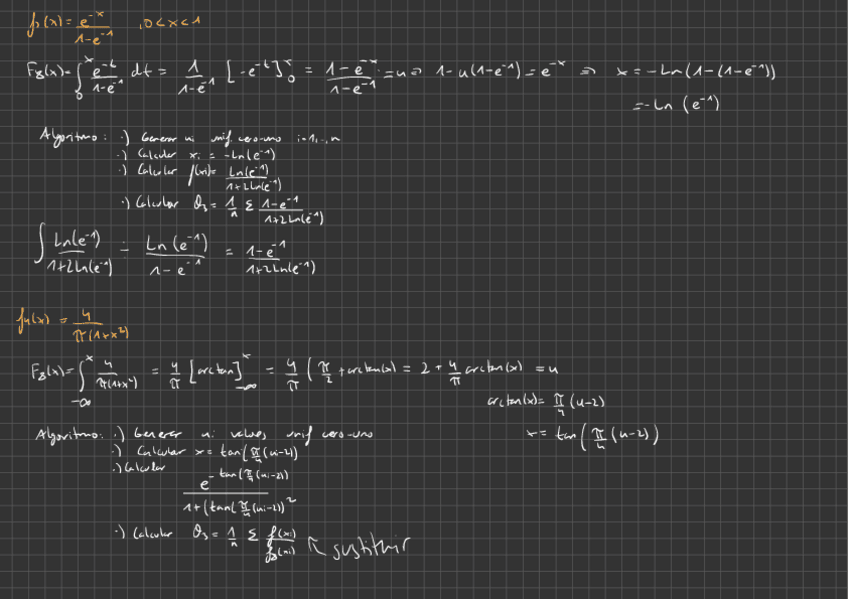 f₃(x) = e^{-x} / (1-e^{-1}) , 0 < x < 1
F₃(x) = ∫₀ˣ e^{-t}/(1-e^{-1}) dt = 1/(1-e^{-1}) [-e^{-t}]₀ˣ = (1-e^{-x})/(1-e^{-1}) = u ⇒ 1-u(1-e^{-1}) = e^{-x} ⇒ x = -Ln(1-(1-e^{-1}))
= -Ln (e^{-1})
Algoritmo: ·) Generar ui unif. cero-uno i=1,..,n
·) Calcular xi = -Ln(e^{-1})
·) Calcular f(xi) = Ln(e^{-1}) / (1+2Ln(e^{-1}))
·) Calcular θ₃ = 1/n Σ (1-e^{-1}) / (1+2Ln(e^{-1}))
∫ Ln(e^{-1}) / (1+2Ln(e^{-1})) = Ln(e^{-1}) / (1-e^{-1}) = (1-e^{-1}) / (1+2Ln(e^{-1}))
f₄(x) = 4 / (π(1+x²))
F₃(x) = ∫_{-∞}^x 4/(π(1+x²)) = 4/π [arctan]_{-∞}^x = 4/π (π/2 + arctan(x) = 2 + 4/π arctan(x) = u
arctan(x) = π/4 (u-2)
x = tan(π/4 (u-2))
Algoritmo: ·) Generar ui values unif cero-uno
·) Calcular x = tan(π/4 (ui-2))
·) Calcular
e^{-tan(π/4(ui-2))} / (1+(tan(π/4(ui-2))²
·) Calcular θ₃ = 1/n Σ f(xi)/f₃(xi) ↖ sustituir